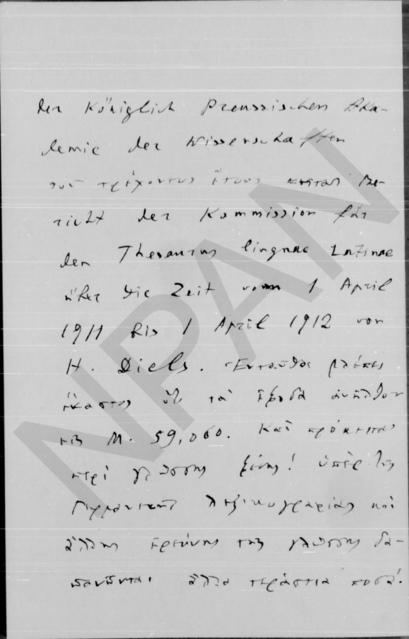 der Königlich Preussischen Aka-
demie der Wissenschaften
τοῦ τρέχοντος ἔτους κεῖται Be-
richt der Kommission für
den Thesaurus linguae Latinae
über die Zeit vom 1 April
1911 bis 1 April 1912 von
H. Diels. Ἐνταῦθα βλέπει
ἕκαστος ὅτι τὰ ἔξοδα ἀνῆλθον
εἰς M. 59,060. Καὶ πρόκειται
περὶ γλώσσης ξένης! ὑπὲρ τῆς
Γερμανικῆς λεξικογραφίας καὶ
ἄλλης ἐρεύνης τῆς γλώσσης δα-
πανῶνται ἄλλα τεράστια ποσά.
NPAN